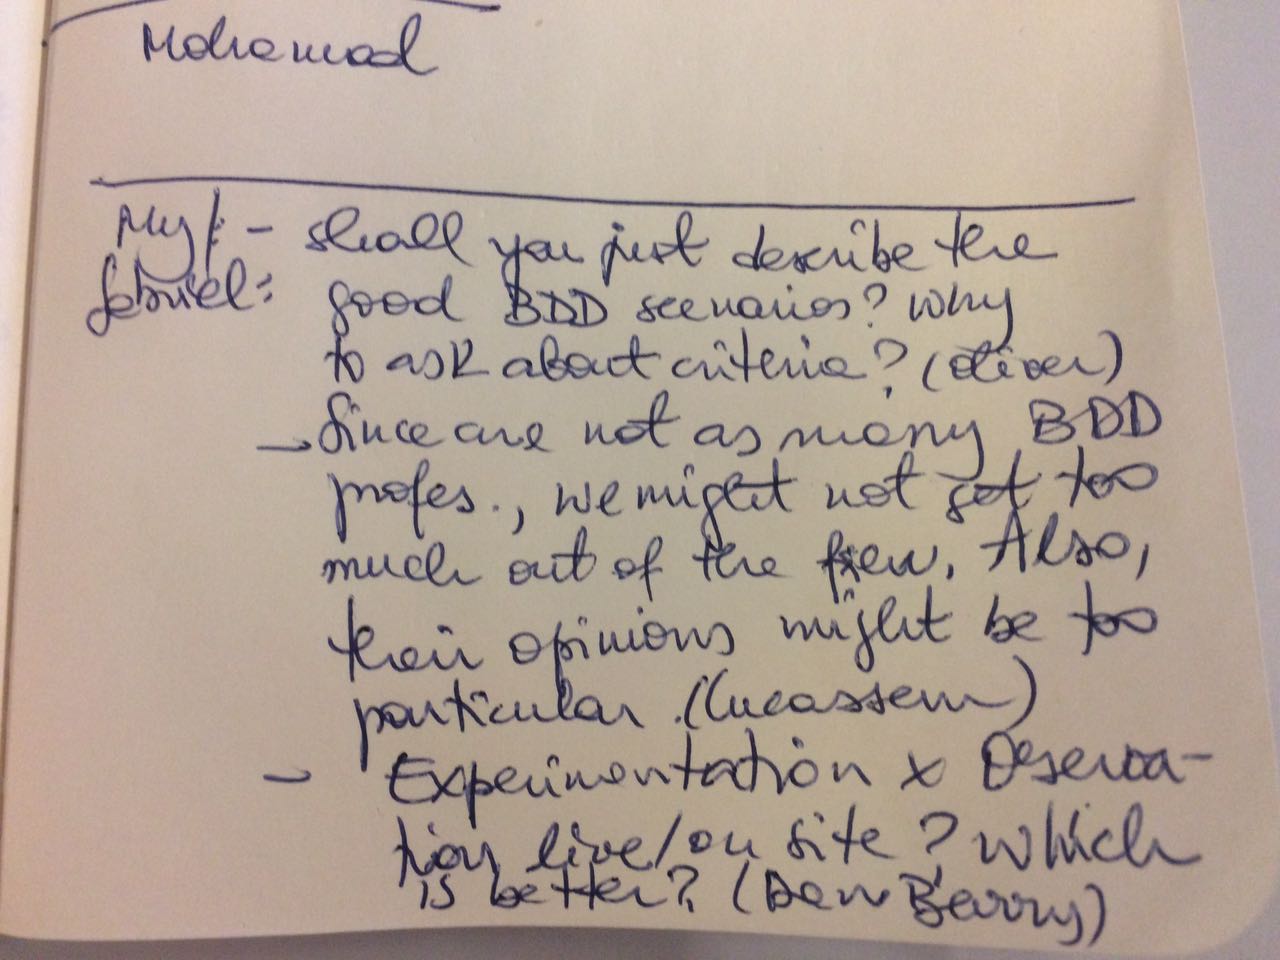 Mohamad
My/: - shall you just describe the
Gabriel: good BDD scenarios? Why
to ask about criteria? (Oliver)
- Since are not as many BDD
profes., we might not get too
much out of the few. Also,
their opinions might be too
particular. (Lucassem)
- Experimentation x Observa-
tion live/on site? Which
is better? (Dan Berry)